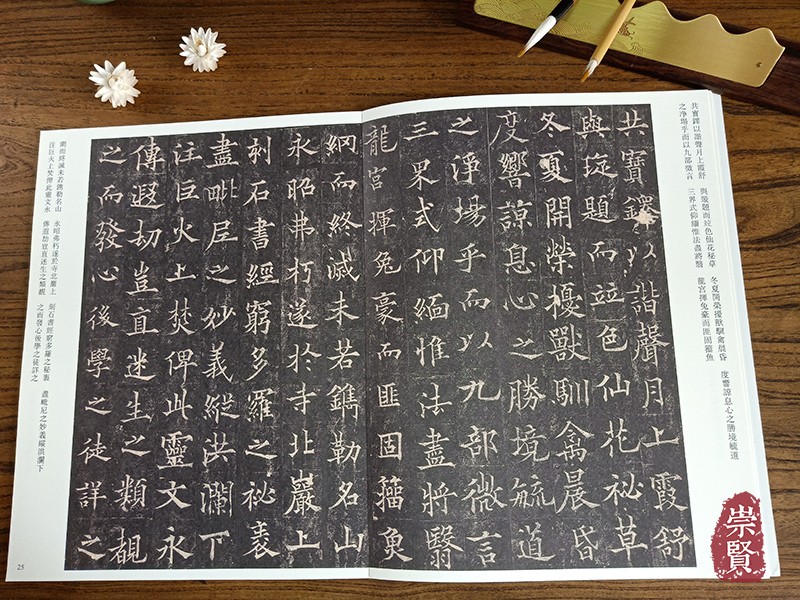 共寶鐸以諧聲月上霞舒 與琁題而竝色仙花秘草 冬夏開榮擾獸馴禽晨昏 度響諒息心之勝境毓道
之淨場乎而以九部微言 三界式仰緬惟法盡將翳 龍宮揮兔豪而匪固籀魚
共寶鐸以諧聲月上霞舒
與琁題而竝色仙花祕草
冬夏開榮擾獸馴禽晨昏
度響諒息心之勝境毓道
之淨場乎而以九部微言
三界式仰緬惟法盡將翳
龍宮揮兔豪而匪固籀魚
網而終滅未若鐫勒名山
永昭弗朽遂於寺北巖上
刻石書經窮多羅之祕袠
盡毗尼之妙義縱洪瀾下
注巨火上焚俾此靈文永
傳遐劫豈直迷生之類覩
之而發心後學之徒詳之
網而終滅未若鐫勒名山 永昭弗朽遂於寺北巖上 刻石書經窮多羅之秘袠 盡毗尼之妙義縱洪瀾下
注巨火上焚俾此靈文永 傳遐劫豈直迷生之類覩 之而發心後學之徒詳之
25
崇賢